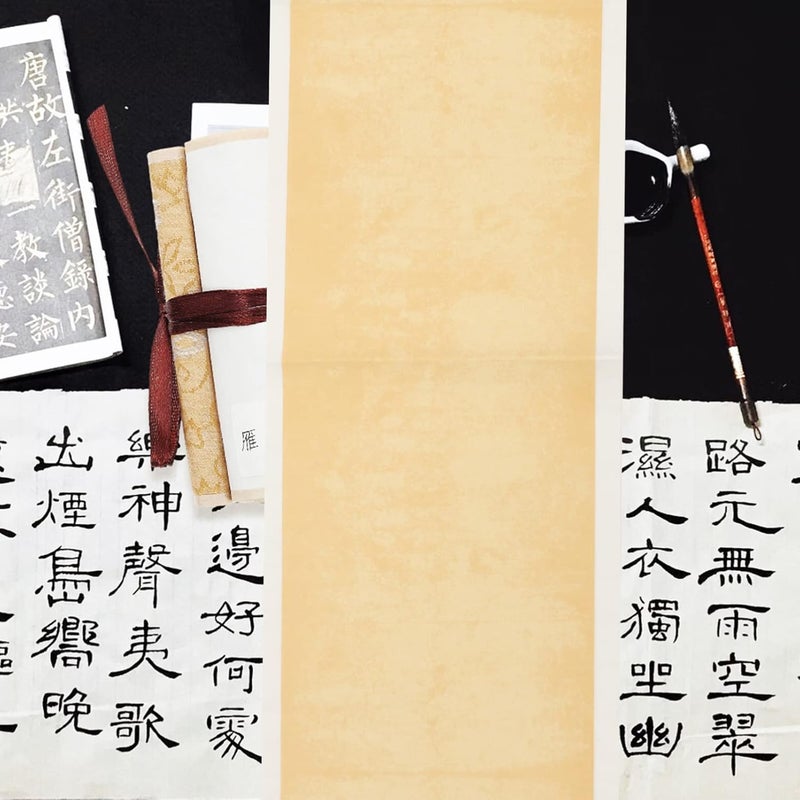 唐故左街僧錄內
教談論
德安
雁
路元無雨空翠
濕人衣獨坐幽
邊好何處
神聲夷歌
出煙島嚮晚